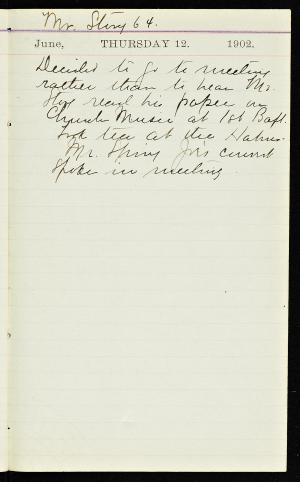 Mr. Story 64.
June, THURSDAY 12. 1902.
Decided to go to meeting
rather than to hear Mr.
Story read his paper on
Church Music at 1st Bapt.
Took tea at the
Mr. Spring
spoke in meeting